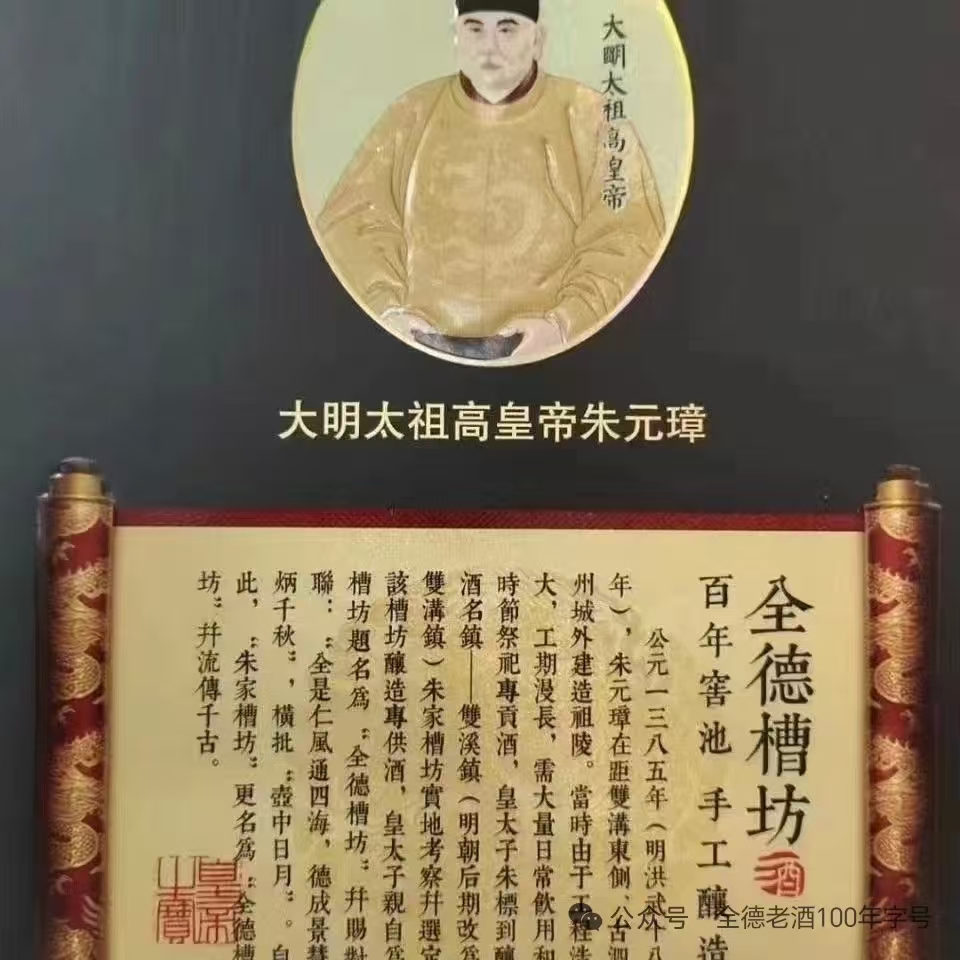 大明太祖高皇帝
大明太祖高皇帝朱元璋
全德槽坊
酒
百年窖池 手工釀造
公元一三八五年（明洪武十八
年），朱元璋在距雙溝東側、古泗
州城外建造祖陵。當時由于工程浩
大，工期漫長，需大量日常飲用和
時節祭祀專貢酒，皇太子朱標到釀
酒名鎮——雙溪鎮（明朝后期改爲
雙溝鎮）朱家槽坊實地考察幷選定
該槽坊釀造專供酒，皇太子親自爲
槽坊題名爲“全德槽坊”幷賜對
聯：“全是仁風通四海，德成景慧
炳千秋”，橫批“壺中日月”。自
此，“朱家槽坊”更名爲“全德槽
坊”幷流傳千古。
公众号 全德老酒100年字号